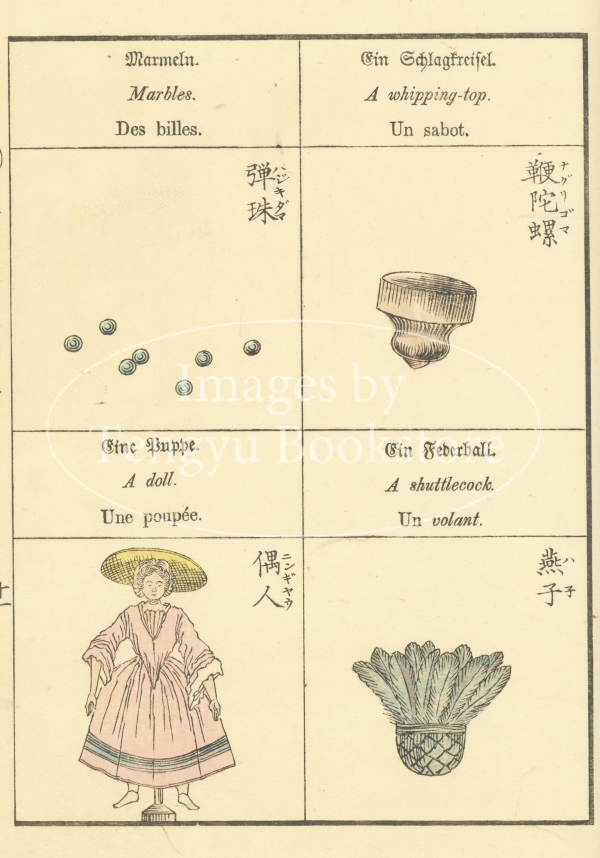 Marmeln.
Marbles.
Des billes.
Ein Schlagkreisel.
A whipping-top.
Un sabot.
弾珠
ハジキダマ
鞭陀螺
ナグリゴマ
Images by
Tengyu Bookstore
Eine Puppe.
A doll.
Une poupée.
Ein Federball.
A shuttlecock.
Un volant.
偶人
ニンギヤウ
燕子
ハ子